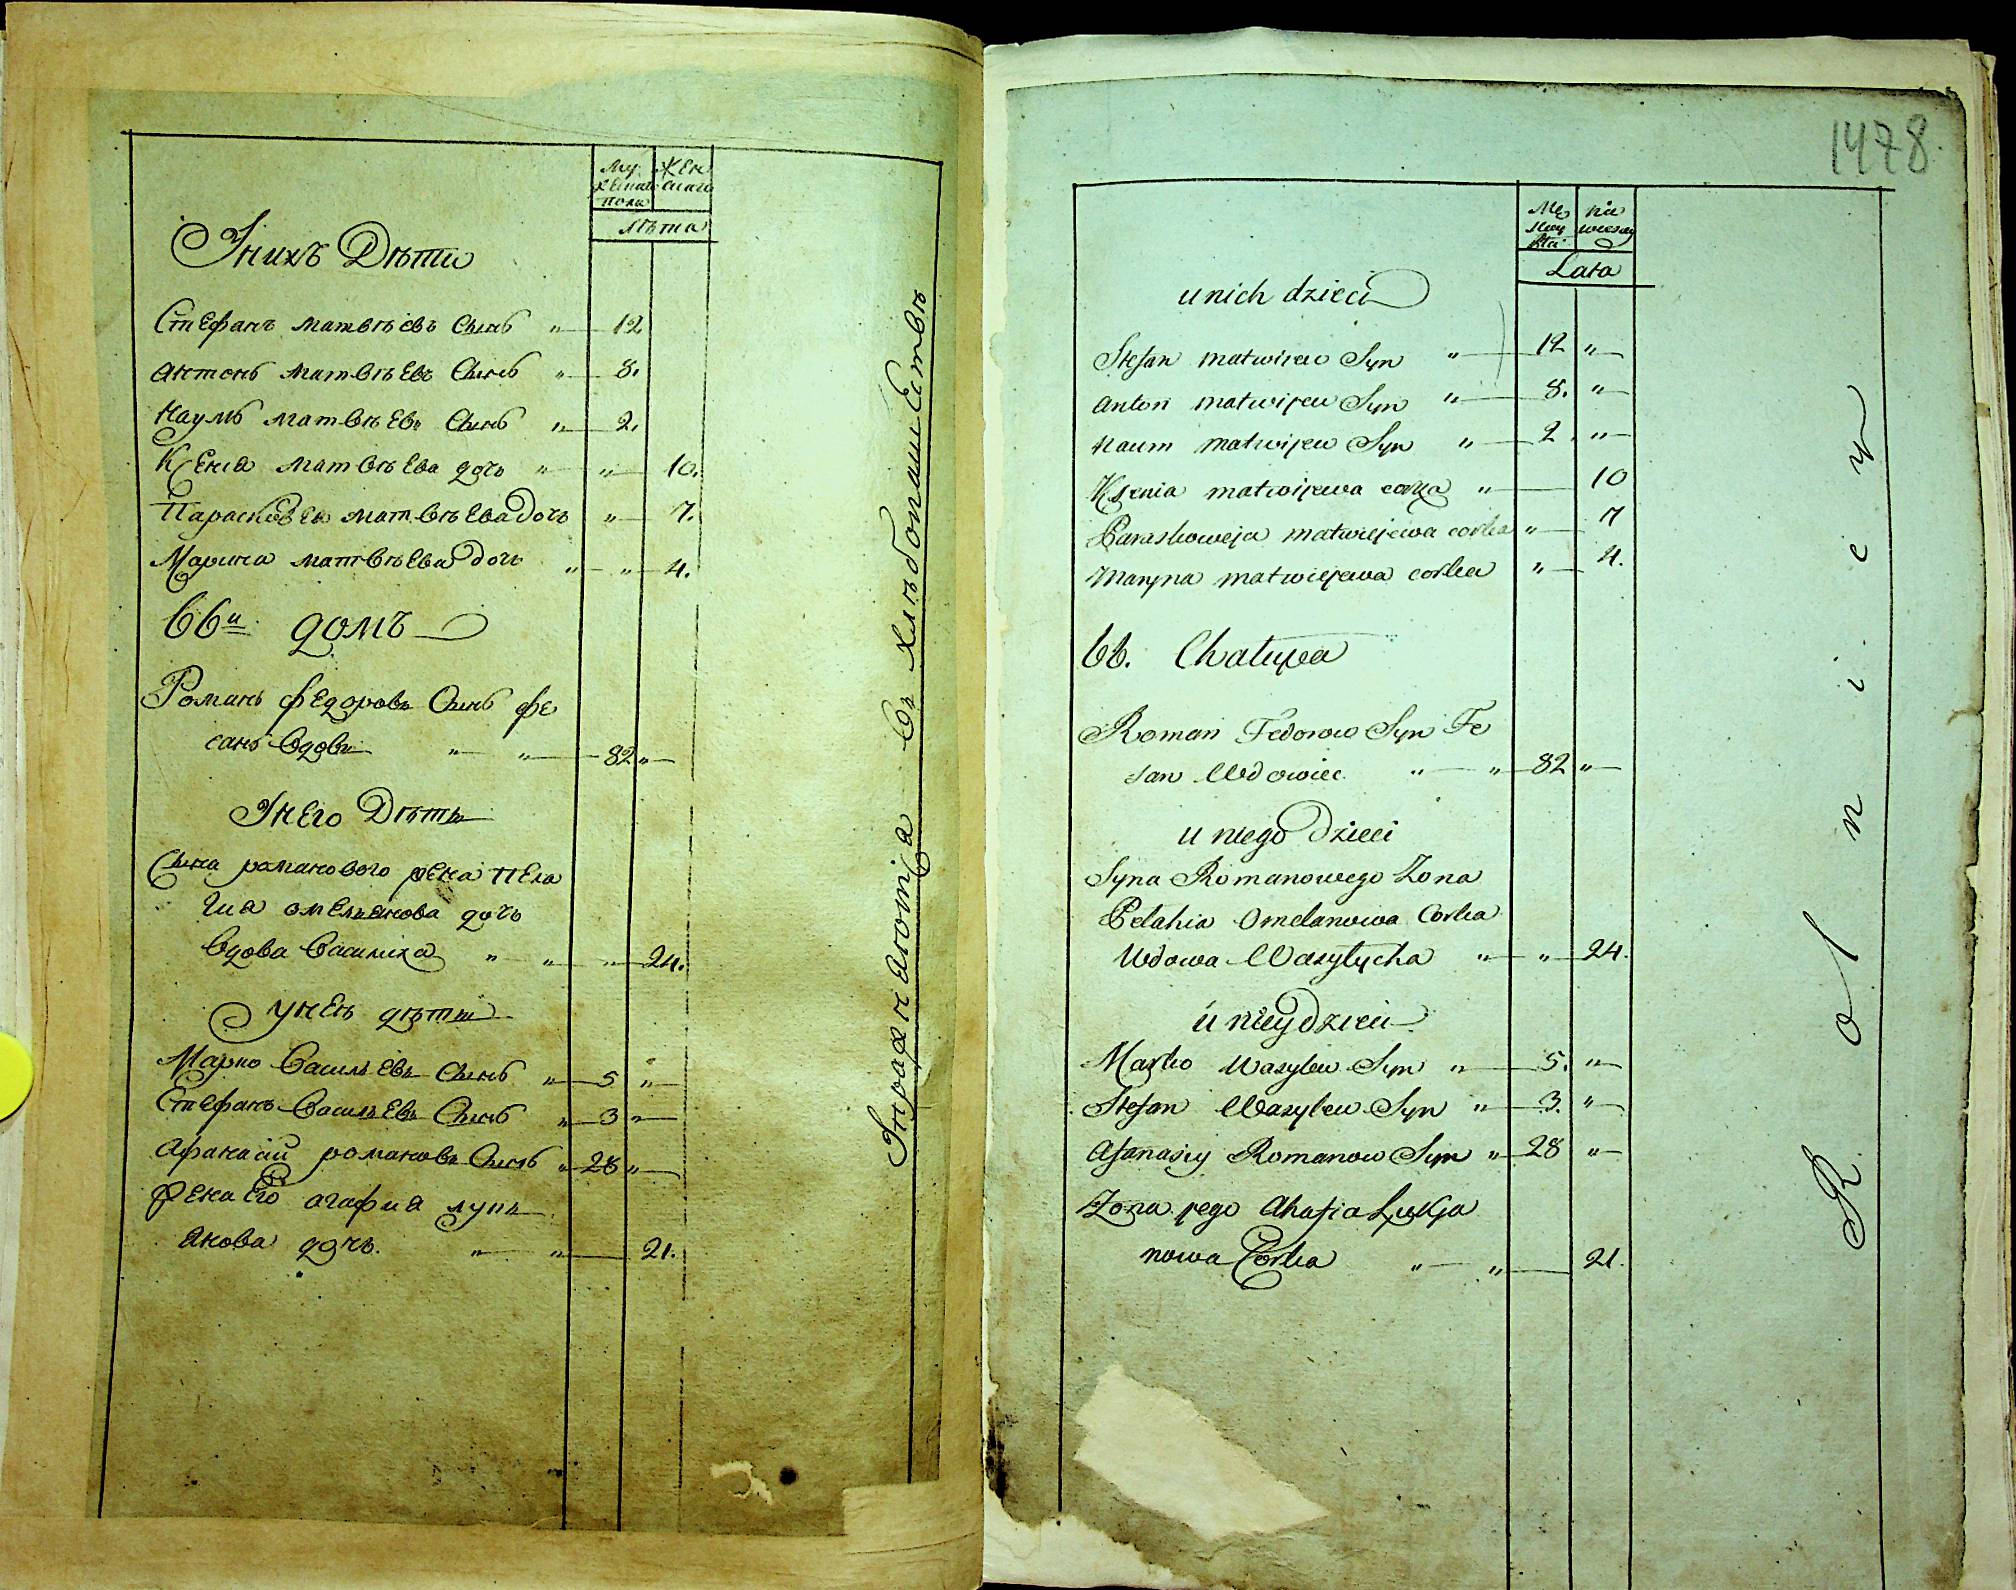 Му
жескаго
пола
Жен
скаго
Лѣта
Уних Дѣти
Стефанъ матвѣевъ Сынъ " 12
антонъ матвѣевъ Сынъ " 8.
Наумъ матвѣевъ Сынъ " 2.
Ксенія матвѣева дочь " " 10.
Парасковея матвѣева дочь " 7.
Марина матвѣева дочь " " 4.
66й домъ
Романъ федоровъ Сынъ фе
санъ вдовъ " " 82 "
У Него Дѣти
Сына романового жена пела
гия омелянова дочь
вдова василиха " " " 24.
У ней дѣти
Марко васильевъ Сынъ " 5 "
Стефанъ васильевъ Сынъ " 3 "
афанасий романовъ Сынъ " 28 "
жена Его агафия лукь
янова дочь. " " 21.
Упражняются въ хлѣбопашествѣ
1478.
Mę
skey
na
wiesey
Lata
u nich dzieci
Stefan matwijew Syn " 12 "
anton matwijew Syn " 8. "
Naum matwijew Syn " 2. "
Ksenia matwijewa corka " 10
Paraskoweja matwiejewa corka " 7
Maryna matwiejewa corka " 4.
66. Chatupa
Roman Fedorow Syn Fe
san Wdowiec " " 82 "
u niego Dzieci
Syna Romanowego Zona
Pelahia Omelanowa Corka
Wdowa Wasylycha " " 24.
u niey dzieci
Marko Wasylew Syn " 5. "
Stefan Wasylew Syn " 3. "
Afanasiy Romanow Syn " 28 "
Zona jego Ahafia Łukja
nowa Corka " " 21.
Rolnicy